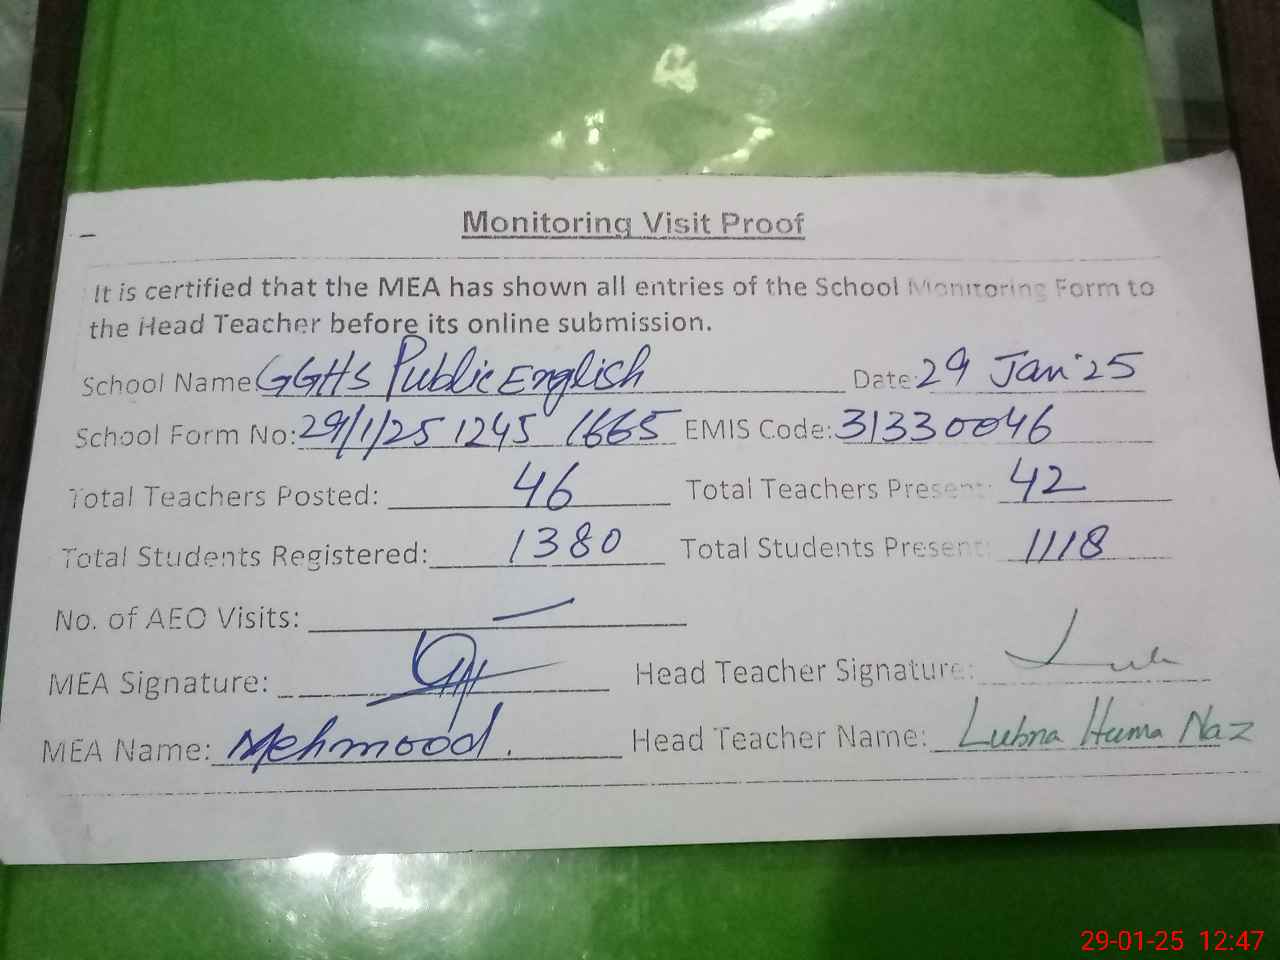 Monitoring Visit Proof
It is certified that the MEA has shown all entries of the School Monitoring Form to
the Head Teacher before its online submission.
School Name GGHS Public English Date: 29 Jan'25
School Form No: 29/1/25 1245 1665 EMIS Code: 31330046
Total Teachers Posted: 46 Total Teachers Present: 42
Total Students Registered: 1380 Total Students Present: 1118
No. of AEO Visits: —
MEA Signature: Head Teacher Signature:
MEA Name: Mehmood. Head Teacher Name: Lubna Huma Naz
29-01-25 12:47